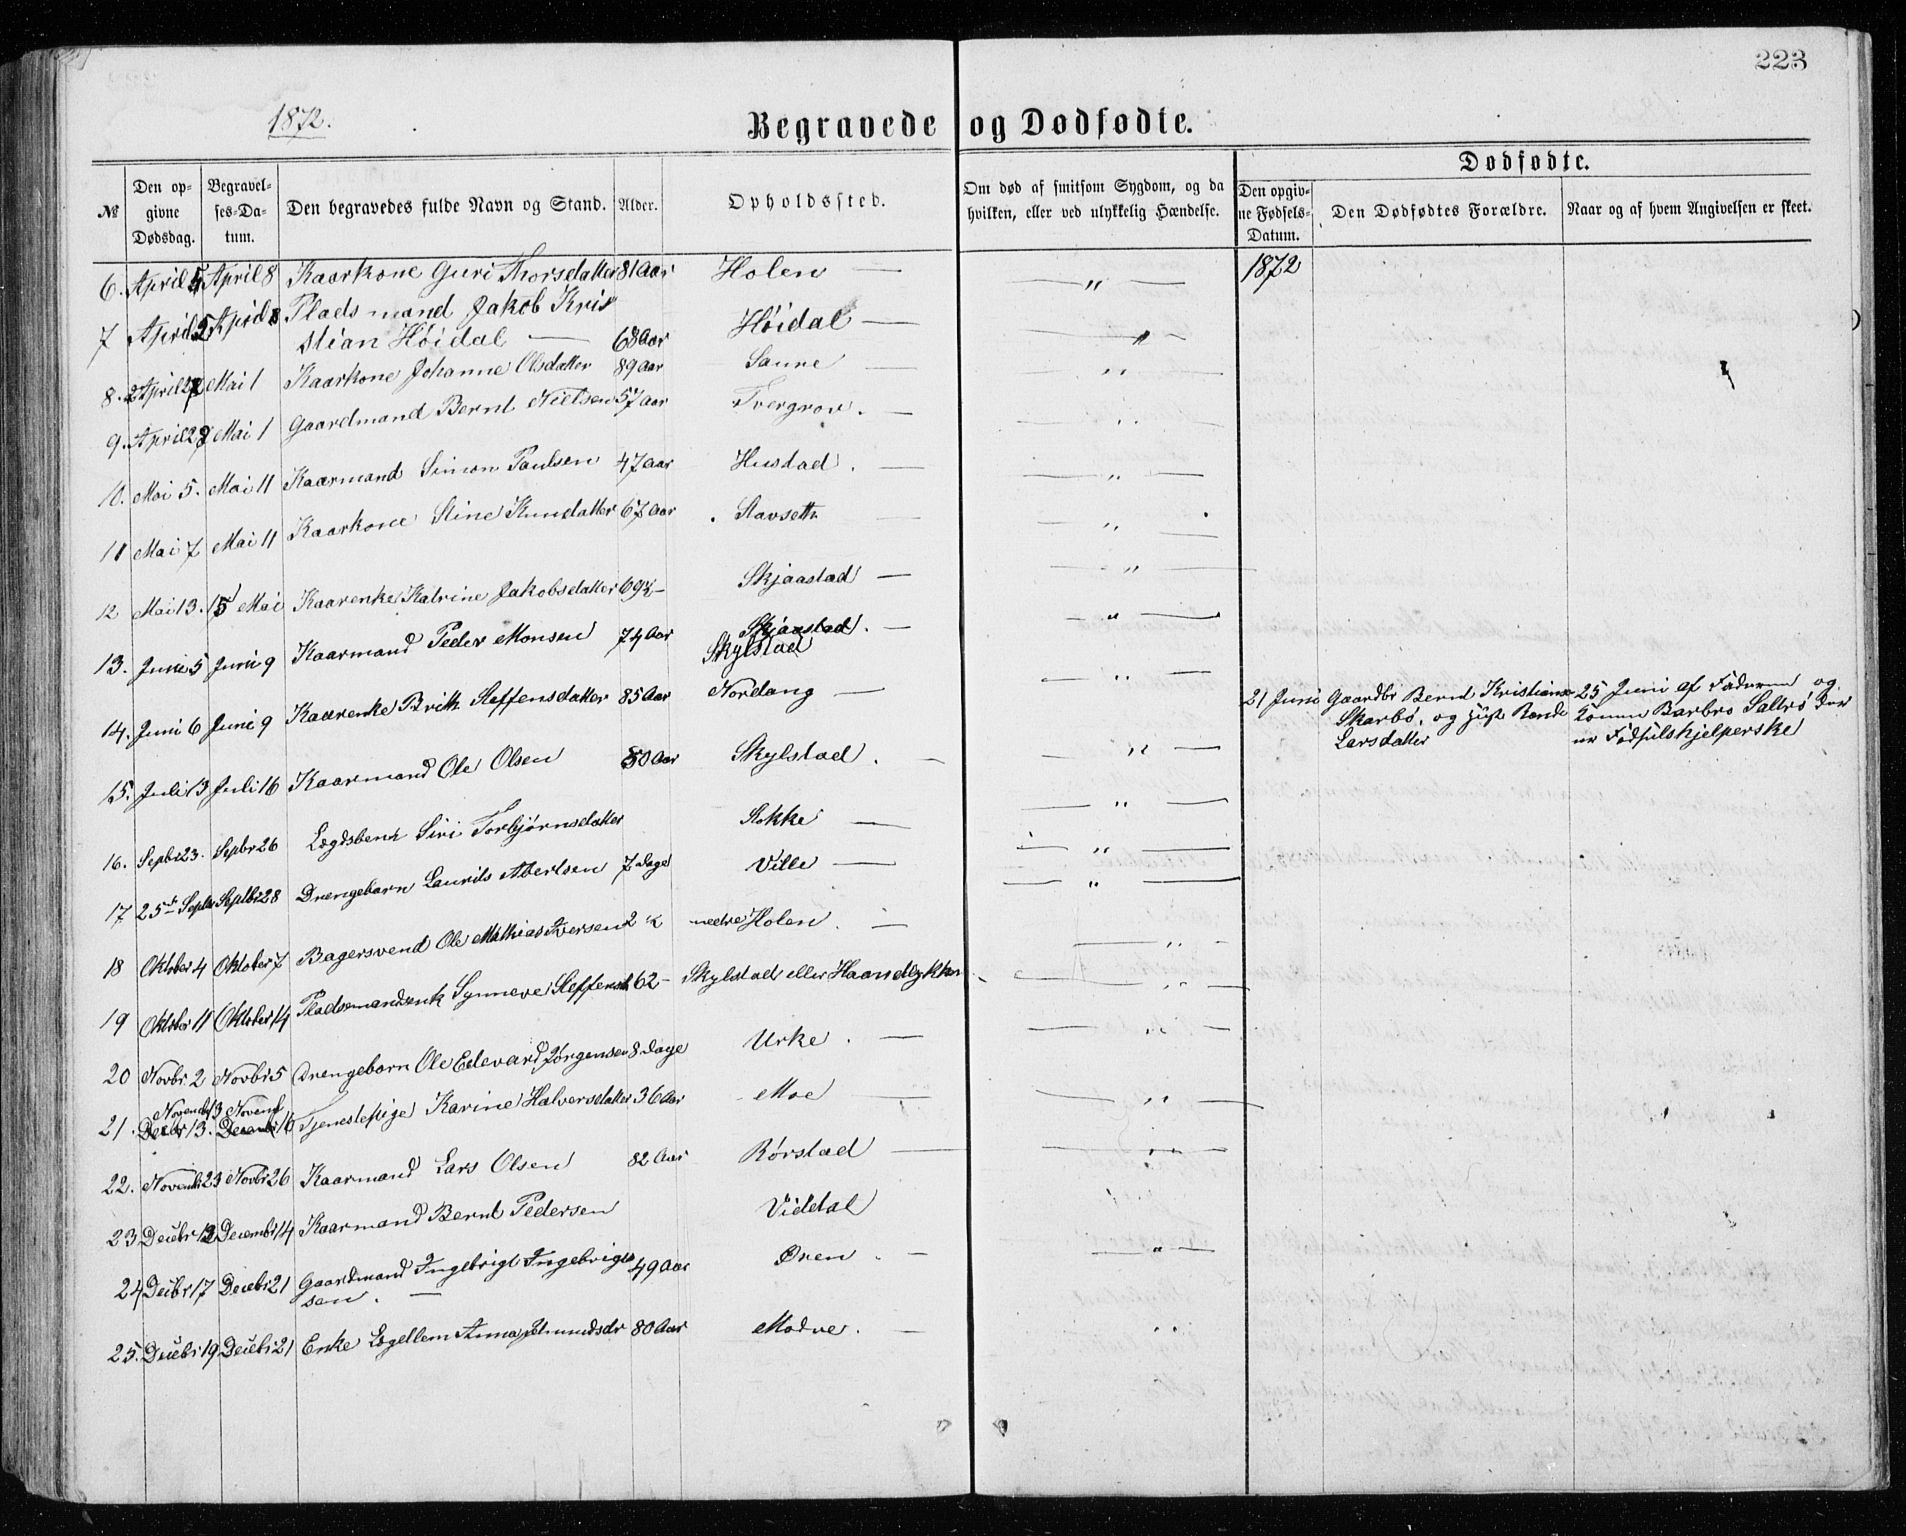 223
1872.
Begravede og Dødfødte.
№
Den opgivne Dødsdag.
Begravelses-Datum.
Den begravedes fulde Navn og Stand.
Alder.
Opholdssted.
Om død af smitsom Sygdom, og da hvilken, eller ved ulykkelig Hændelse.
Dødfødte.
Den opgivne Fødsels-Datum.
Den Dødfødtes Forældre.
Naar og af hvem Angivelsen er skeet.
6. April 5 April 8 Kaarkone Guri Thorsdatter 81 Aar Holen — — " — 1872
7 April 2 April 8 Pladsmand Jakob Kri
stian Høidal — 68 Aar Høidal — — " —
8. April 27 Mai 1 Kaarkone Johanne Olsdatter 89 Aar Saure — — " —
9. April 27 Mai 1 Gaardmand Bernt Nielsen 57 Aar Tvergrov. — — " —
10. Mai 5. Mai 11 Kaarmand Simon Paulsen 47 Aar Hustad. — — " —
11 Mai 7 Mai 11 Kaarkone Stine Knudatter 67 Aar Stavseth — — " —
12 Mai 13. 15 Mai Kaarenke Katrine Jakobsdatter Skjaastad — — " —
13. Juni 5 Juni 9 Kaarmand Peder Monsen 74 Aar Skjaastad. — — " —
Skylstad
14. Juni 6 Juni 9 Kaarenke Brith Steffensdatter 85 Aar Nordang — — " —
21 Juni Gaardbr Bernt Kristians 25 Juni af Faderen og
Skarbø. og Rande Barbro Sæbø
Larsdatter er Fødselshjelperske
15. Juli 13 Juli 16 Kaarmand Ole Olsen 80 Aar Skylstad. — — " —
16. Septbr 23. Septbr 26 Lægdslem Siri Torbjørnsdatter Stokke — — " —
17 25de Septbr Septbr 28 Drengebarn Laurits 7 Dage Ville — — " —
18 Oktober 4 Oktober 7 Bagersvend Ole Mathias Iversen nedre Holen. — — " —
19 Oktober 11 Oktober 14 Pladsmandsenk Synneve Steffensd 62 – Skylstad eller Haandlykken — " —
20 Novbr. 2 Novbr 5 Drengebarn Ole Edevard Jørgensen 8 Dage Urke. — — " —
Novemb 13 Novemb
21. Decbr 13. Decembr 16 Tjenestepige Karine Halvorsdatter 36 Aar Moe — — " —
22. Novemb 23 Novbr 26 Kaarmand Lars Olsen 82 Aar Rørstad — — " —
23 Decbr 12 Decembr 14 Kaarmand Bernt Pedersen Viddal
24 Decbr 17 Decbr 21 Gaardmand Ingebrigt Ingebrigt
sen. — 49 Aar Øren. — — " —
25. Decbr 19 Decbr 21 Enke Anna 80 Aar Modve. — "